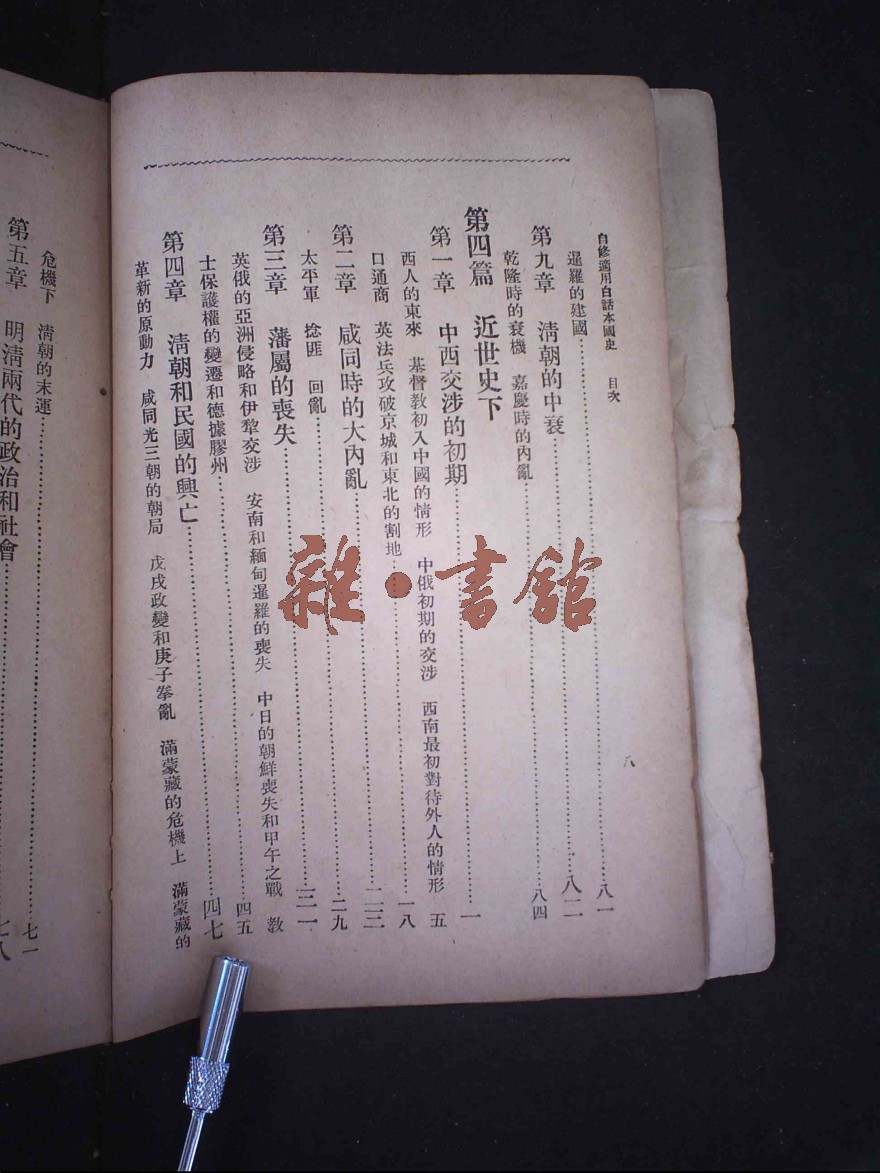 自修適用白話本國史　目次　八
暹羅的建國……八一
第九章　清朝的中衰……八二
乾隆時的衰機　嘉慶時的內亂……八四
第四篇　近世史下
第一章　中西交涉的初期……一
西人的東來　基督教初入中國的情形　中俄初期的交涉　西南最初對待外人的情形　五
口通商　英法兵攻破京城和東北的割地……一八
第二章　咸同時的大內亂……二三
太平軍　捻匪　回亂……二九
第三章　藩屬的喪失……三一
英俄的亞洲侵略和伊犂交涉　安南和緬甸暹羅的喪失　中日的朝鮮喪失和甲午之戰　教
士保護權的變遷和德據膠州……四五
第四章　清朝和民國的興亡……四七
革新的原動力　咸同光三朝的朝局　戊戌政變和庚子拳亂　滿蒙藏的危機上　滿蒙藏的
危機下　清朝的末運……七一
第五章　明清兩代的政治和社會……七八
雜·書館